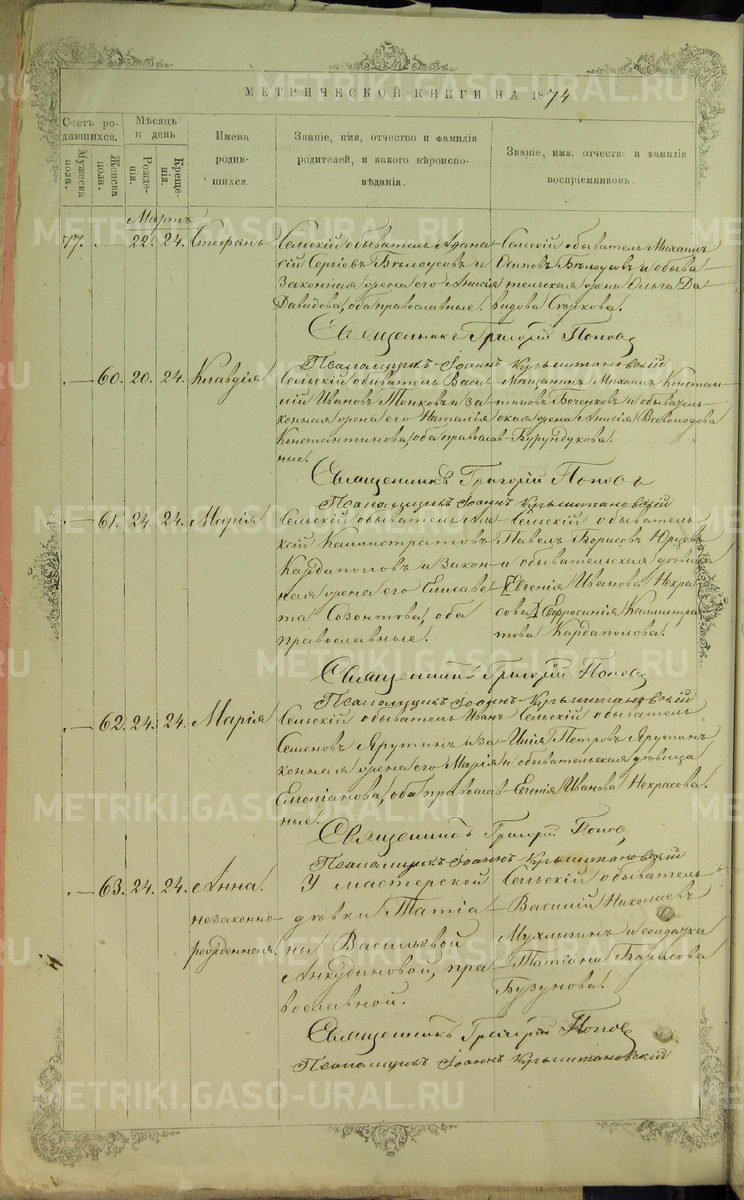 МЕТРИЧЕСКОЙ КНИГИ НА 1874
Счетъ родившихся.
Мѣсяцъ и день
Имена родившихся.
Званіе, имя, отчество и фамилія родителей, и какого вѣроисповѣданія.
Званіе, имя, отчество и фамилія воспріемниковъ.
Мужеска пола.
Женска пола.
Рожденія.
Крещенія.
Мартъ
77. — 22. 24. Стефанъ
Сельскій обыватель Афана-
сій Сергіевъ Бѣлоусовъ и
Законная жена его Анисія
Давидова, оба православные.
Сельскій обыватель Михаилъ
Осиповъ Бѣлоусовъ и обыва-
тельская жена Ольга Да-
видова
Священникъ Григорій Поповъ
Псаломщикъ Іоаннъ
— 60. 20. 24. Клавдія
Сельскій обыватель Васи-
лій Ивановъ Тонковъ и За-
конная жена его Наталія
Константинова, оба православ-
ные.
Мѣщанинъ Михаилъ Констан-
тиновъ Боченковъ и обыватель-
ская жена Анисія Всеволодова
Бурундукова.
Священникъ Григорій Поповъ
Псаломщикъ Іоаннъ
— 61. 24. 24. Марія
Сельскій обыватель Але-
ксій Калистратовъ
Кардаполовъ и Закон-
ная жена его Елисаве-
та Созонтова, оба
православные.
Сельскій обыватель
Павелъ Борисовъ
и обывательская вдовица
Евгенія Иванова Некра-
сова Евфросинія Калистра-
това Кардаполова.
Священникъ Григорій Поповъ
Псаломщикъ Іоаннъ
— 62. 24. 24. Марія
Сельскій обыватель Иванъ
Семеновъ Ярутинъ и За-
конная жена его Марія
Емеліанова, оба православ-
ные.
Сельскій обыватель
Илія Петровъ Ярутинъ
и обывательская вдовица
Евгенія Иванова Некрасова.
Священникъ Григорій Поповъ
Псаломщикъ Іоаннъ
— 63. 24. 24. Анна
незаконно-
рожденная.
У мастерской
дѣвки Татіа-
ны Васильевой
Анкудиновой, пра-
вославной.
Сельскій обыватель
Василій Николаевъ
Мухлынинъ и солдатка
Татіана Борисова
Бузунова.
Священникъ Григорій Поповъ
Псаломщикъ Іоаннъ
METRIKI.GASO-URAL.RU